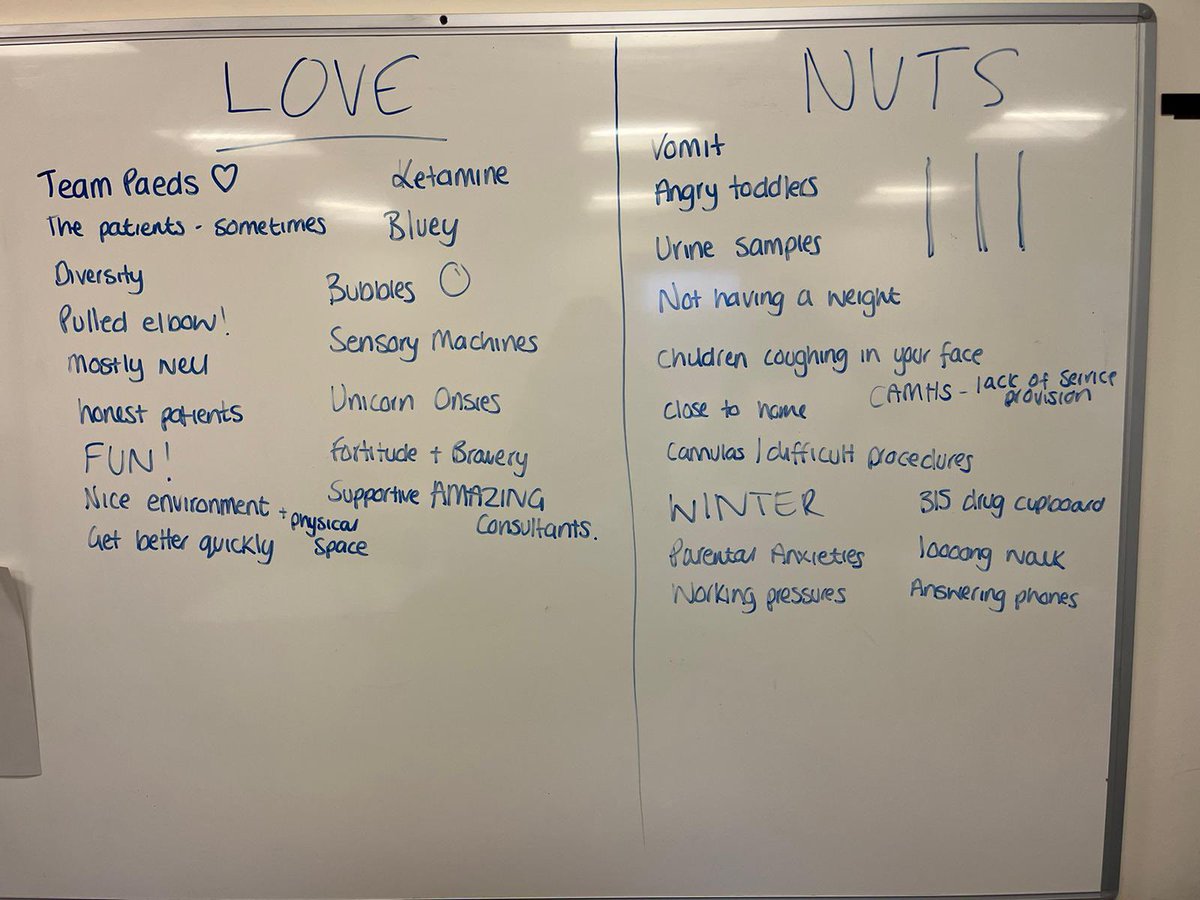 LOVE
Team Paeds
The patients - sometimes
Diversity
Pulled elbow!
Mostly well
honest patients
FUN!
Nice environment + physical
space
Get better quickly
Ketamine
Bluey
Bubbles
Sensory Machines
Unicorn Onsies
Fortitude + Bravery
Supportive AMAZING
Consultants.
NUTS
Vomit
Angry toddlers
Urine samples
Not having a weight
Children coughing in your face
CAMHS - lack of service
provision
Close to home
Cannulas / difficult procedures
WINTER
Parental Anxieties
Working pressures
315 drug cupboard
loooong walk
Answering phones